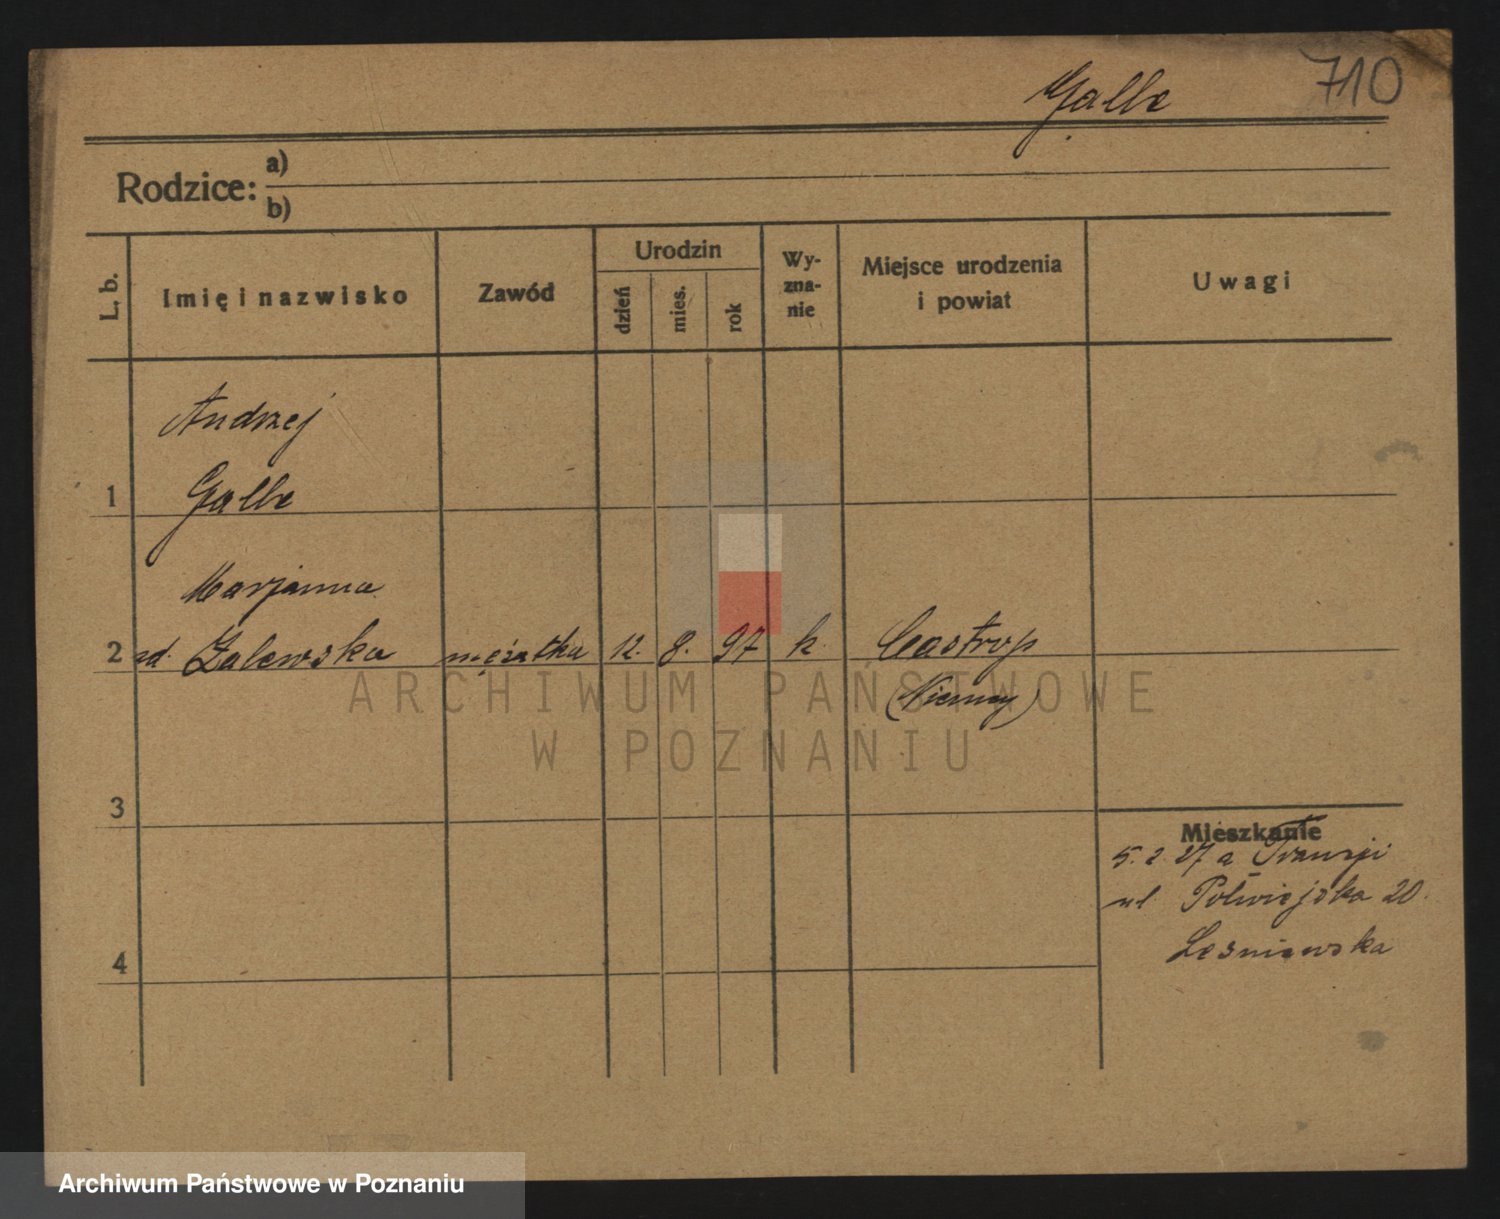 Galbe 710
Rodzice: a)
b)
L. b. Imię i nazwisko Zawód Urodzin dzień mies. rok Wy-zna-nie Miejsce urodzenia i powiat Uwagi
Andrzej
1 Galbe
Marjanna
2 zd. Zalewska mężatka 12. 8. 97 k. Castrop
(Niemcy)
3
Mieszkanie
5. 2. 27 a Francji
ul Półwiejska 20.
4 Leśniewska
ARCHIWUM PAŃSTWOWE
W POZNANIU
Archiwum Państwowe w Poznaniu